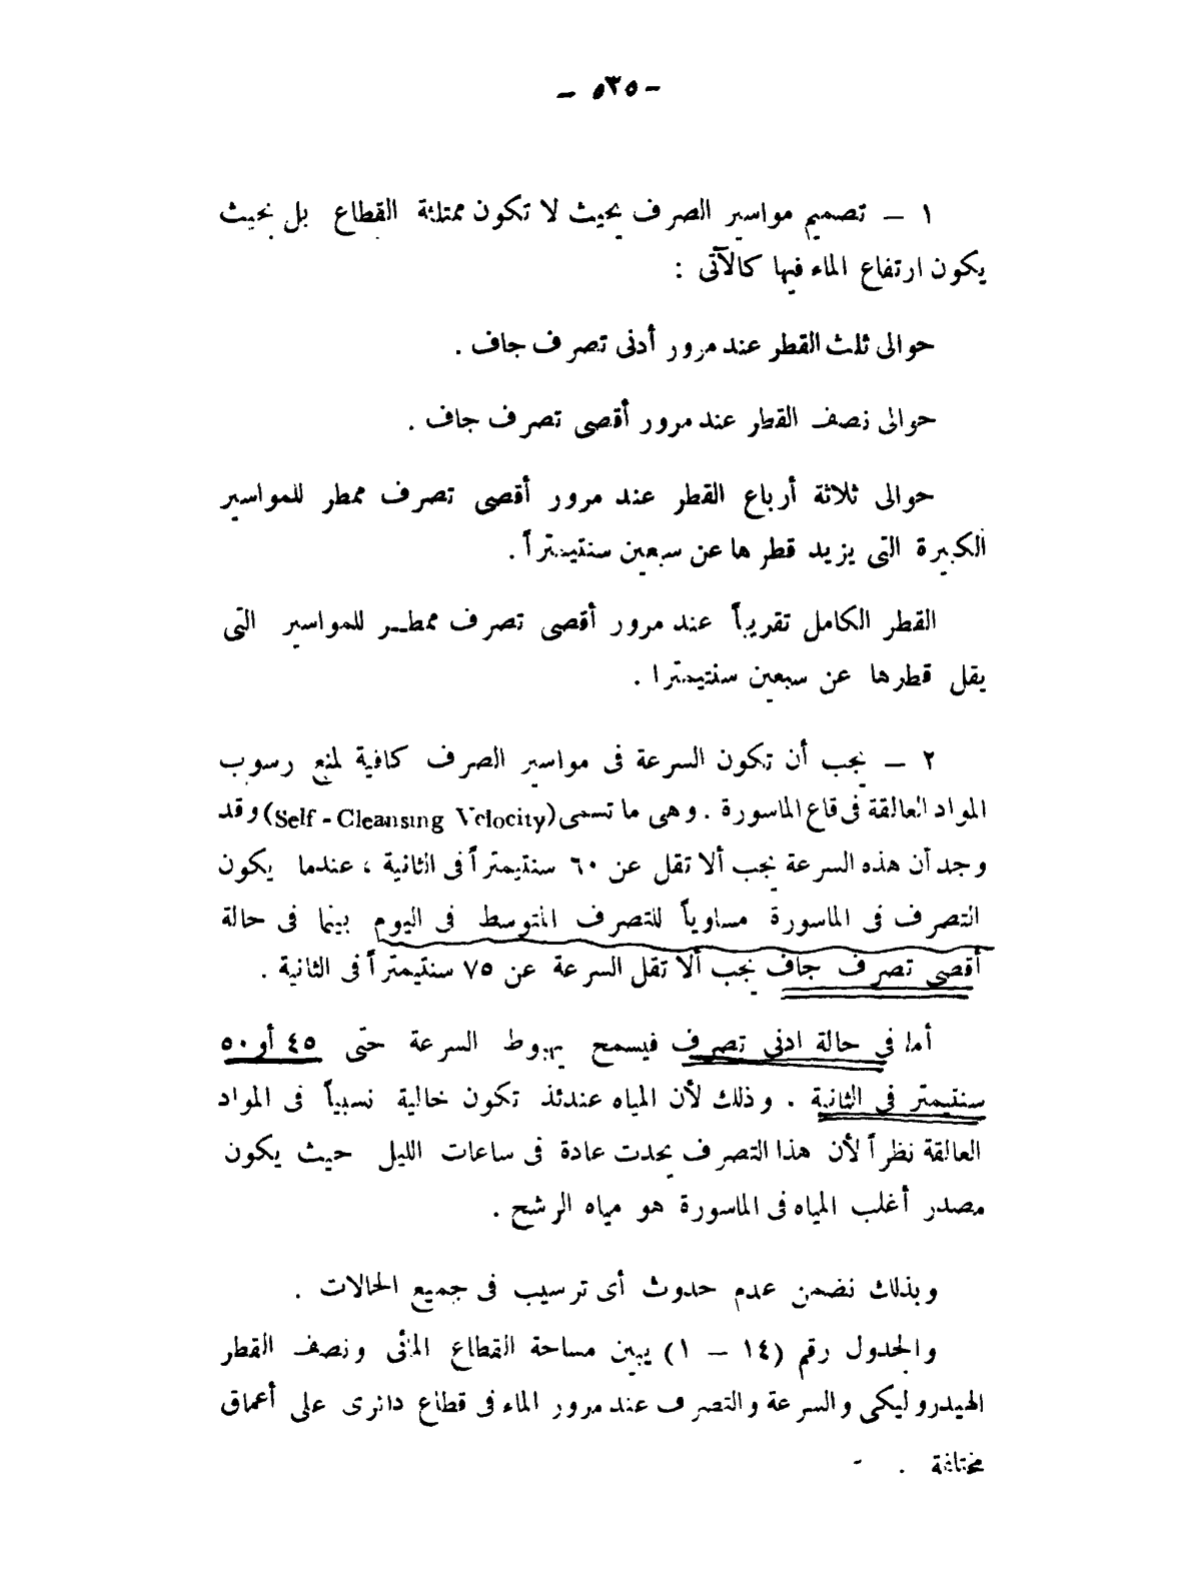 - ٥٣٥ -
١ – تصميم مواسير الصرف بحيث لا تكون ممتلئة القطاع بل بحيث
يكون ارتفاع الماء فيها كالآتى :
حوالى ثلث القطر عند مرور أدنى تصرف جاف .
حوالى نصف القطر عند مرور أقصى تصرف جاف .
حوالى ثلاثة أرباع القطر عند مرور أقصى تصرف ممطر للمواسير
الكبيرة التى يزيد قطرها عن سبعين سنتيمتراً .
القطر الكامل تقريباً عند مرور أقصى تصرف ممطــر للمواسير التى
يقل قطرها عن سبعين سنتيمترا .
٢ – يجب أن تكون السرعة فى مواسير الصرف كافية لمنع رسوب
المواد العالقة فى قاع الماسورة . وهى ما تسمى (Self - Cleansing Velocity) وقد
وجد أن هذه السرعة يجب ألا تقل عن ٦٠ سنتيمتراً فى الثانية ، عندما يكون
التصرف فى الماسورة مساوياً للتصرف المتوسط فى اليوم بينما فى حالة
أقصى تصرف جاف يجب ألا تقل السرعة عن ٧٥ سنتيمتراً فى الثانية .
أما فى حالة ادنى تصرف فيسمح بهبوط السرعة حتى ٤٥ أو ٥٠
سنتيمتر فى الثانية . وذلك لأن المياه عندئذ تكون خالية نسبياً فى المواد
العالقة نظراً لأن هذا التصرف يحدث عادة فى ساعات الليل حيث يكون
مصدر أغلب المياه فى الماسورة هو مياه الرشح .
وبذلك نضمن عدم حدوث أى ترسيب فى جميع الحالات .
والجدول رقم (١٤ – ١) يبين مساحة القطاع المائى ونصف القطر
الهيدروليكى والسرعة والتصرف عند مرور الماء فى قطاع دائرى على أعماق
مختلفة .